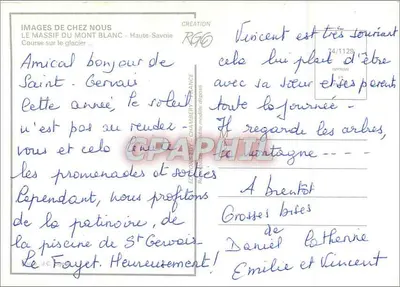 IMAGES DE CHEZ NOUS
LE MASSIF DU MONT BLANC - Haute-Savoie
Course sur le glacier ...
CRÉATION
RGG
Amical bonjour de
Saint-Gervais
Cette année, le soleil
n'est pas au rendez-
vous et cela
les promenades et sorties
Cependant, nous profitons
de la patinoire, de
la piscine de St Gervais-
Le Fayet. Heureusement!
CHAMBERY-FRANCE
CPAPHIL
74/1139
Vincent est très souriant
cela lui plait d'être
avec sa sœur et ses parents
toute la journée -
Il regarde les arbres,
la montagne -----
A bientôt
Grosses bises
de
Daniel Catherine
Emilie et Vincent